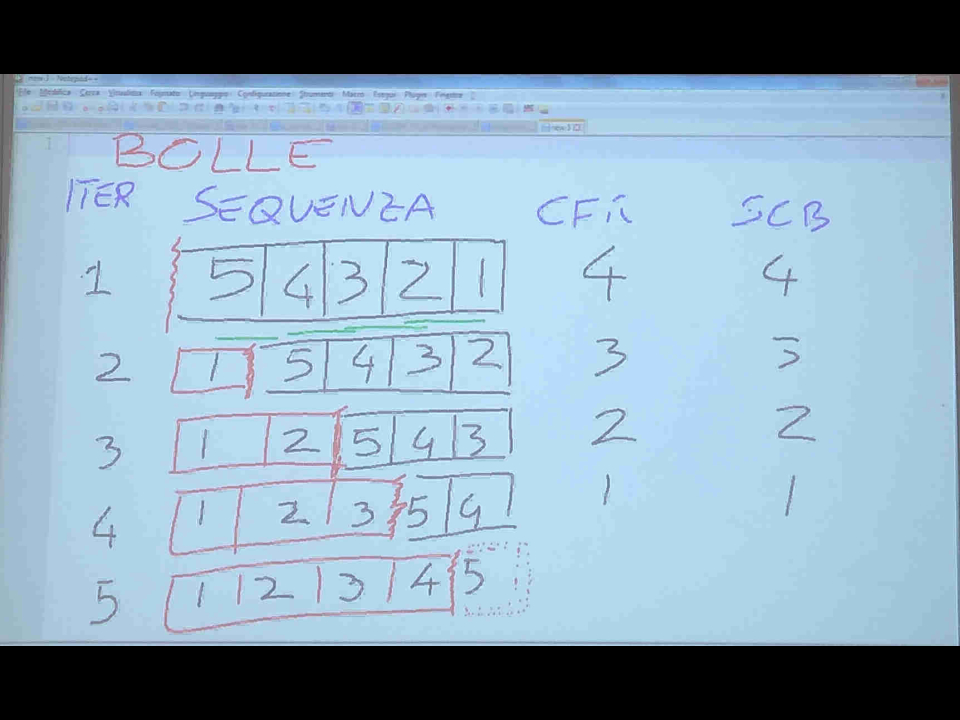 new 3 - Notepad++
File Modifica Cerca Visualizza Formato Linguaggio Configurazione Strumenti Macro Esegui Plugin Finestra ?
new 3
1
BOLLE
ITER SEQUENZA CFR SCB
1 5 4 3 2 1 4 4
2 1 5 4 3 2 3 3
3 1 2 5 4 3 2 2
4 1 2 3 5 4 1 1
5 1 2 3 4 5